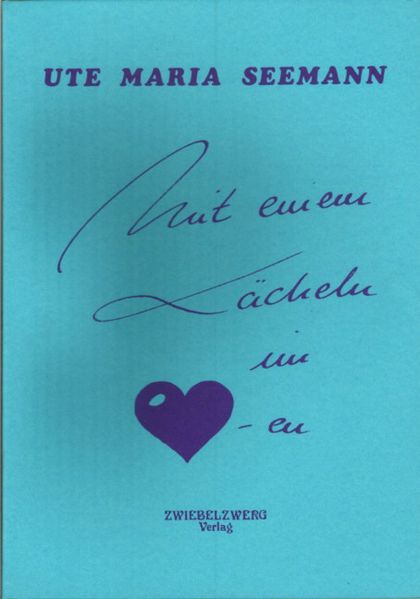 UTE MARIA SEEMANN
Mit einem
Lächeln
im
-en
ZWIEBELZWERG
Verlag